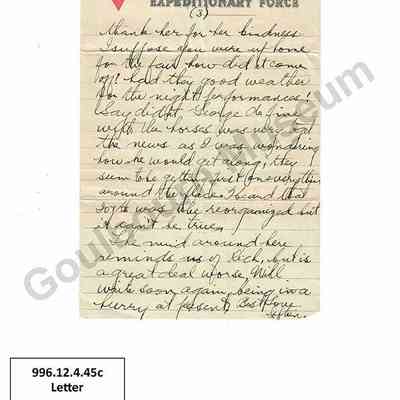 EXPEDITIONARY FORCE
(3)
thank her for her kindness
I suppose you were up home
for the fair how did it come
off? had they good weather
for the night performances?
Say didn't George do fine
with the horses was very
the news as I was wondering
how he would get along, they
seem to be getting everything
around the place. I heard that
was reorganized but
it can't be true.
The mud around here
reminds us of but is
a great deal worse. Will
write soon again, being in a
hurry at present. Best love
Goulbourn Museum
996.12.4.45c
Letter